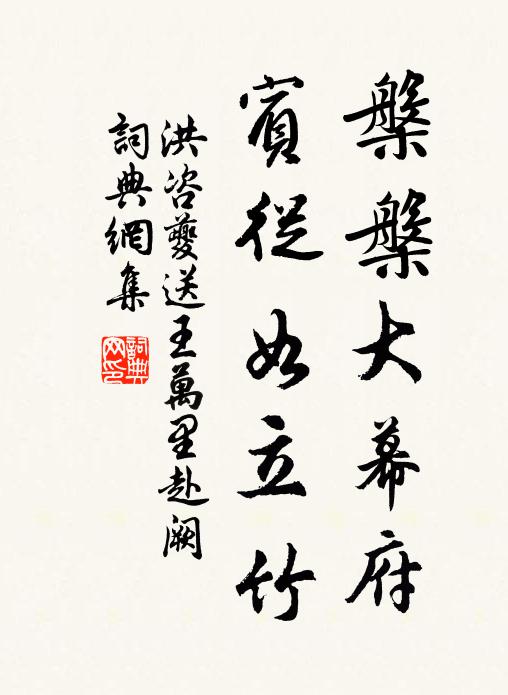 槃槃大幕府
賓從如立竹
洪咨夔送王萬里赴阙
詞典網集
詞典網印